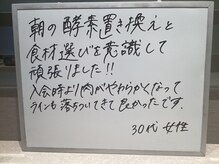 朝の酵素置き換えと
食材選びを意識して
頑張りました!!
入会時より肉がやわらかくなって
ラインも落ちついてきて良かったです。
30代 女性